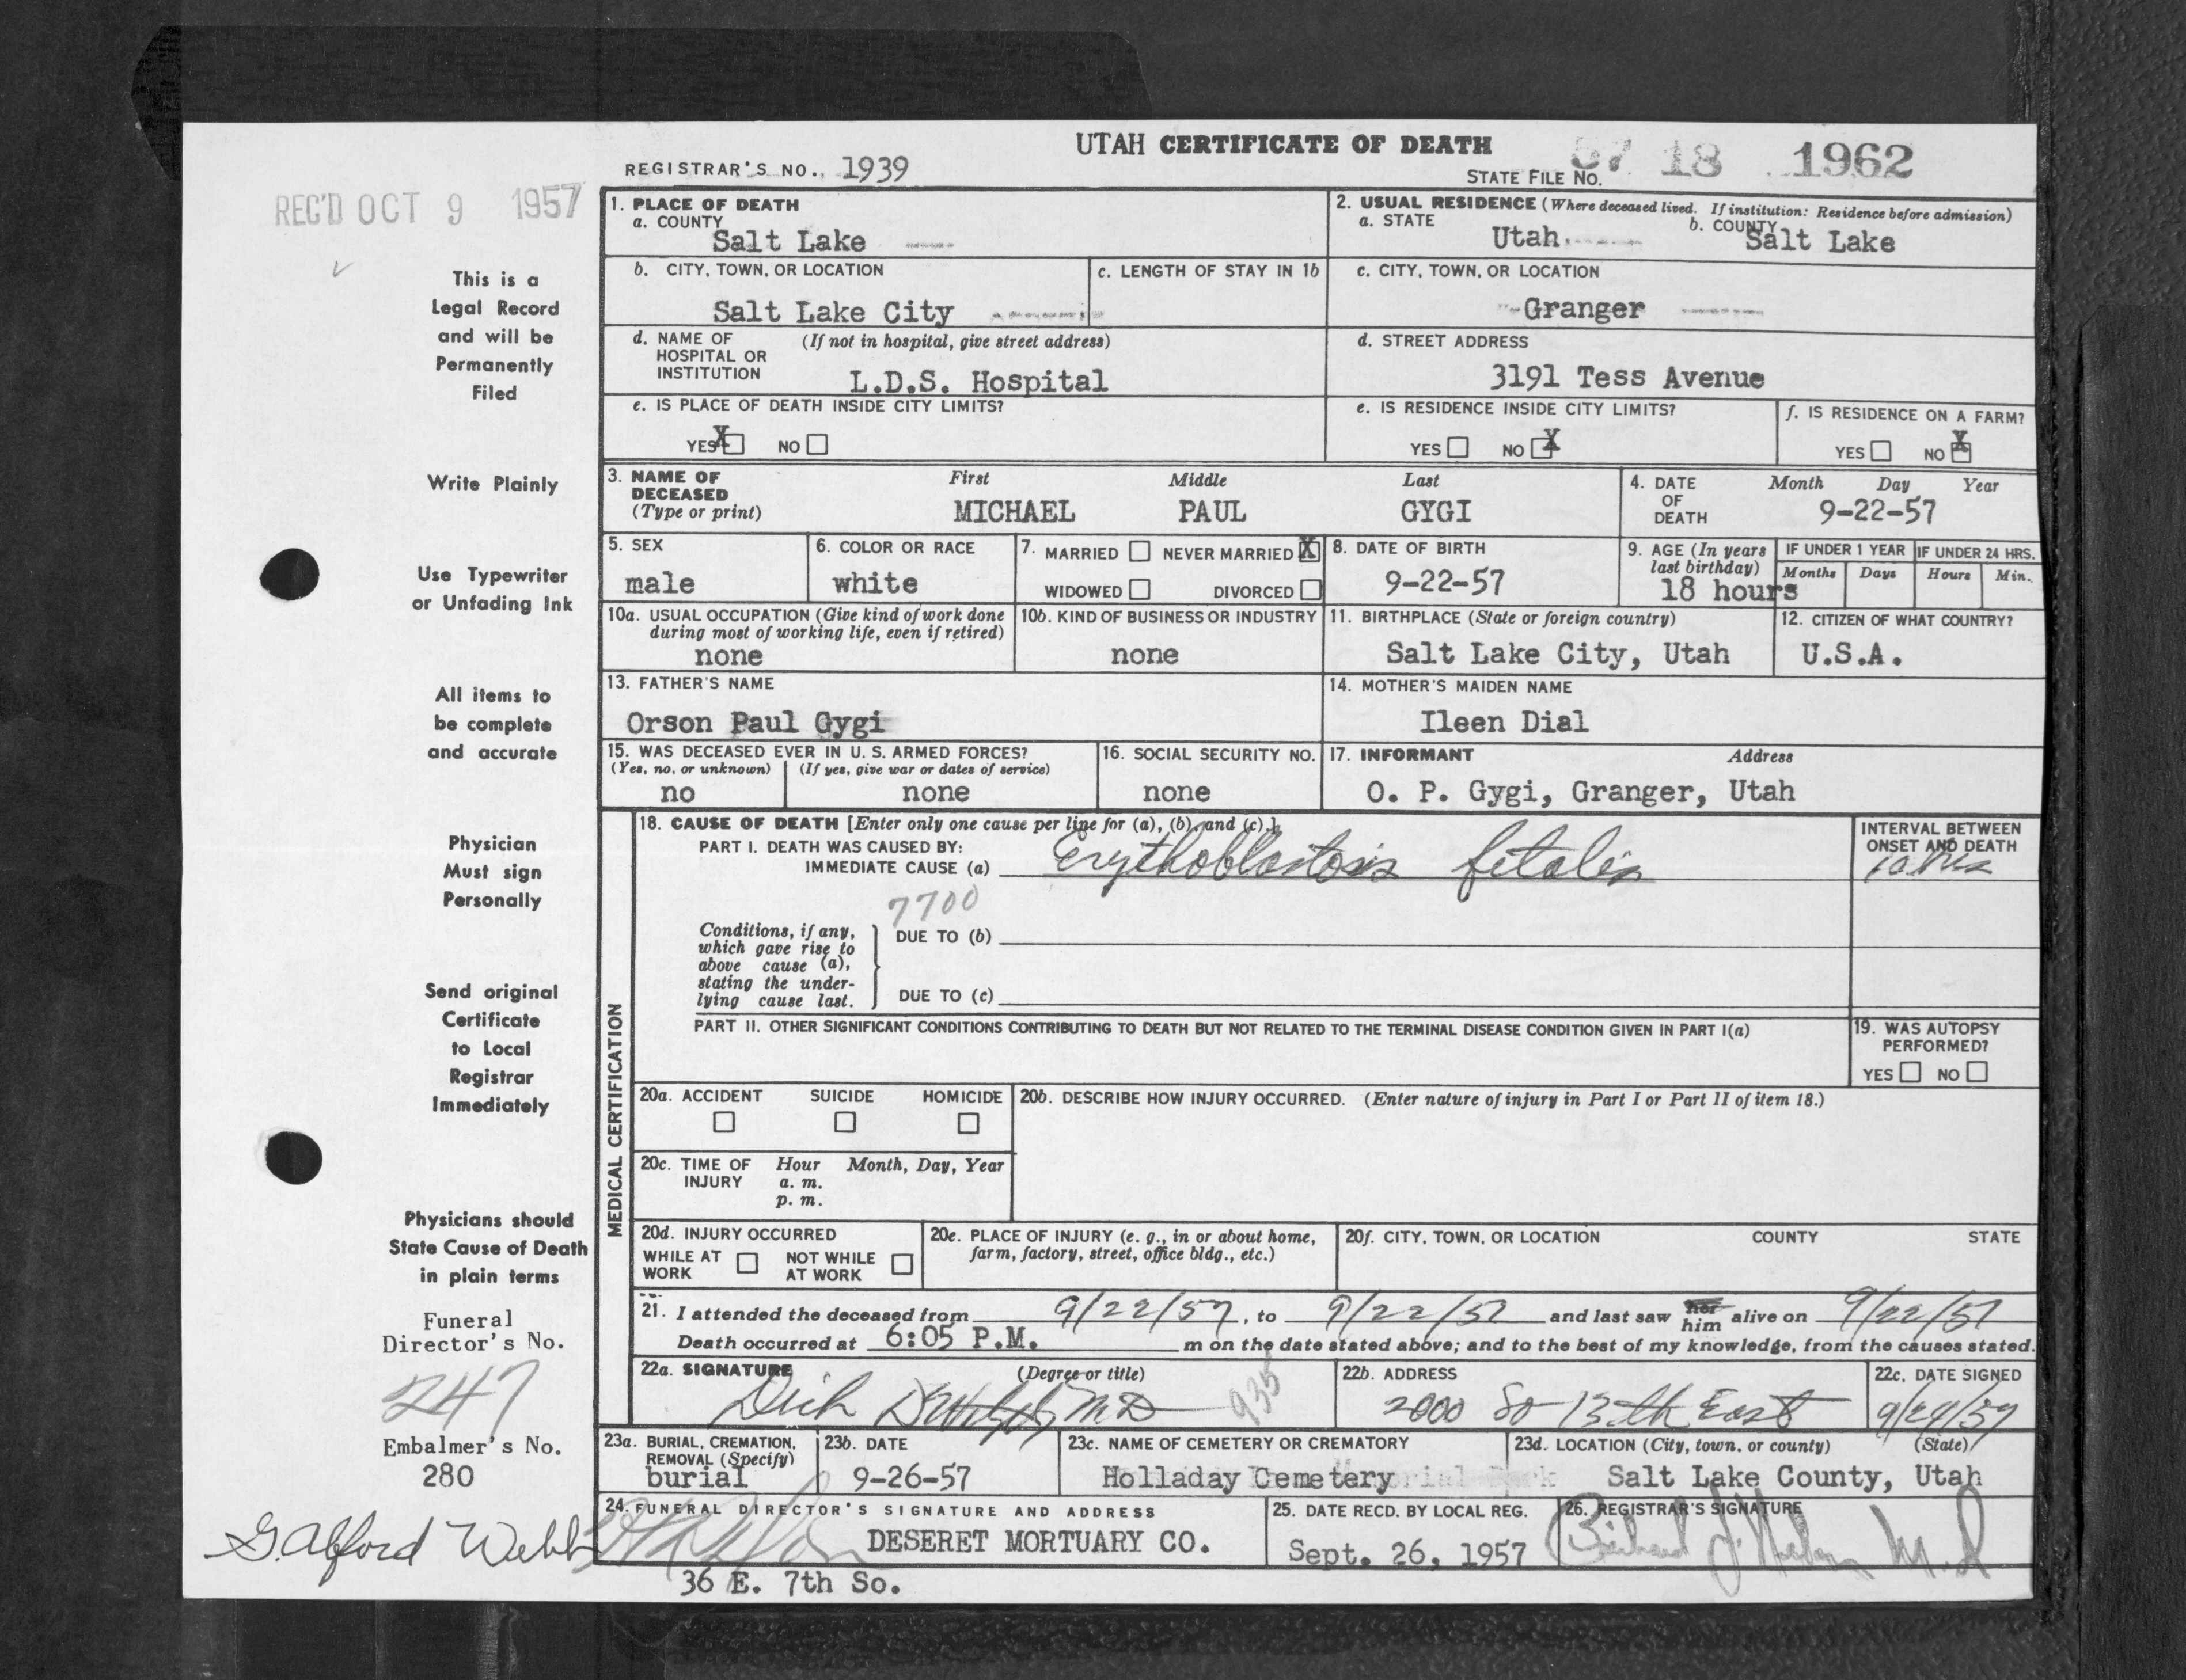 UTAH CERTIFICATE OF DEATH
REGISTRAR'S NO. 1939
STATE FILE NO. 57 18 1962
REC'D OCT 9 1957
This is a
Legal Record
and will be
Permanently
Filed
Write Plainly
Use Typewriter
or Unfading Ink
All items to
be complete
and accurate
Physician
Must sign
Personally
Send original
Certificate
to Local
Registrar
Immediately
Physicians should
State Cause of Death
in plain terms
Funeral
Director's No.
247
Embalmer's No.
280
G. Alford Webb
1. PLACE OF DEATH
a. COUNTY
Salt Lake
2. USUAL RESIDENCE (Where deceased lived. If institution: Residence before admission)
a. STATE Utah b. COUNTY Salt Lake
b. CITY, TOWN, OR LOCATION
Salt Lake City
c. LENGTH OF STAY IN 1b
c. CITY, TOWN, OR LOCATION
Granger
d. NAME OF HOSPITAL OR INSTITUTION (If not in hospital, give street address)
L.D.S. Hospital
d. STREET ADDRESS
3191 Tess Avenue
e. IS PLACE OF DEATH INSIDE CITY LIMITS?
YES X NO
e. IS RESIDENCE INSIDE CITY LIMITS?
YES NO X
f. IS RESIDENCE ON A FARM?
YES NO X
3. NAME OF DECEASED (Type or print)
First Middle Last
MICHAEL PAUL GYGI
4. DATE OF DEATH Month Day Year
9-22-57
5. SEX
male
6. COLOR OR RACE
white
7. MARRIED NEVER MARRIED X
WIDOWED DIVORCED
8. DATE OF BIRTH
9-22-57
9. AGE (In years last birthday)
18 hours
IF UNDER 1 YEAR IF UNDER 24 HRS.
Months Days Hours Min.
10a. USUAL OCCUPATION (Give kind of work done during most of working life, even if retired)
none
10b. KIND OF BUSINESS OR INDUSTRY
none
11. BIRTHPLACE (State or foreign country)
Salt Lake City, Utah
12. CITIZEN OF WHAT COUNTRY?
U.S.A.
13. FATHER'S NAME
Orson Paul Gygi
14. MOTHER'S MAIDEN NAME
Ileen Dial
15. WAS DECEASED EVER IN U. S. ARMED FORCES?
(Yes, no, or unknown) (If yes, give war or dates of service)
no none
16. SOCIAL SECURITY NO.
none
17. INFORMANT Address
O. P. Gygi, Granger, Utah
MEDICAL CERTIFICATION
18. CAUSE OF DEATH [Enter only one cause per line for (a), (b), and (c).]
PART I. DEATH WAS CAUSED BY:
IMMEDIATE CAUSE (a) Erythoblastosis fetalis
INTERVAL BETWEEN ONSET AND DEATH
7700
Conditions, if any, which gave rise to above cause (a), stating the underlying cause last.
DUE TO (b)
DUE TO (c)
PART II. OTHER SIGNIFICANT CONDITIONS CONTRIBUTING TO DEATH BUT NOT RELATED TO THE TERMINAL DISEASE CONDITION GIVEN IN PART I(a)
19. WAS AUTOPSY PERFORMED?
YES NO
20a. ACCIDENT SUICIDE HOMICIDE
20b. DESCRIBE HOW INJURY OCCURRED. (Enter nature of injury in Part I or Part II of item 18.)
20c. TIME OF INJURY Hour Month, Day, Year
a. m.
p. m.
20d. INJURY OCCURRED
WHILE AT WORK NOT WHILE AT WORK
20e. PLACE OF INJURY (e. g., in or about home, farm, factory, street, office bldg., etc.)
20f. CITY, TOWN, OR LOCATION COUNTY STATE
21. I attended the deceased from 9/22/57, to 9/22/57 and last saw her him alive on 9/22/57
Death occurred at 6:05 P.M. m on the date stated above; and to the best of my knowledge, from the causes stated.
22a. SIGNATURE (Degree or title)
Dick MD
935
22b. ADDRESS
2000 So 13th East
22c. DATE SIGNED
9/24/57
23a. BURIAL, CREMATION, REMOVAL (Specify)
burial
23b. DATE
9-26-57
23c. NAME OF CEMETERY OR CREMATORY
Holladay Cemetery
23d. LOCATION (City, town, or county) (State)
Salt Lake County, Utah
24. FUNERAL DIRECTOR'S SIGNATURE AND ADDRESS
DESERET MORTUARY CO.
36 E. 7th So.
25. DATE RECD. BY LOCAL REG.
Sept. 26, 1957
26. REGISTRAR'S SIGNATURE
M.D